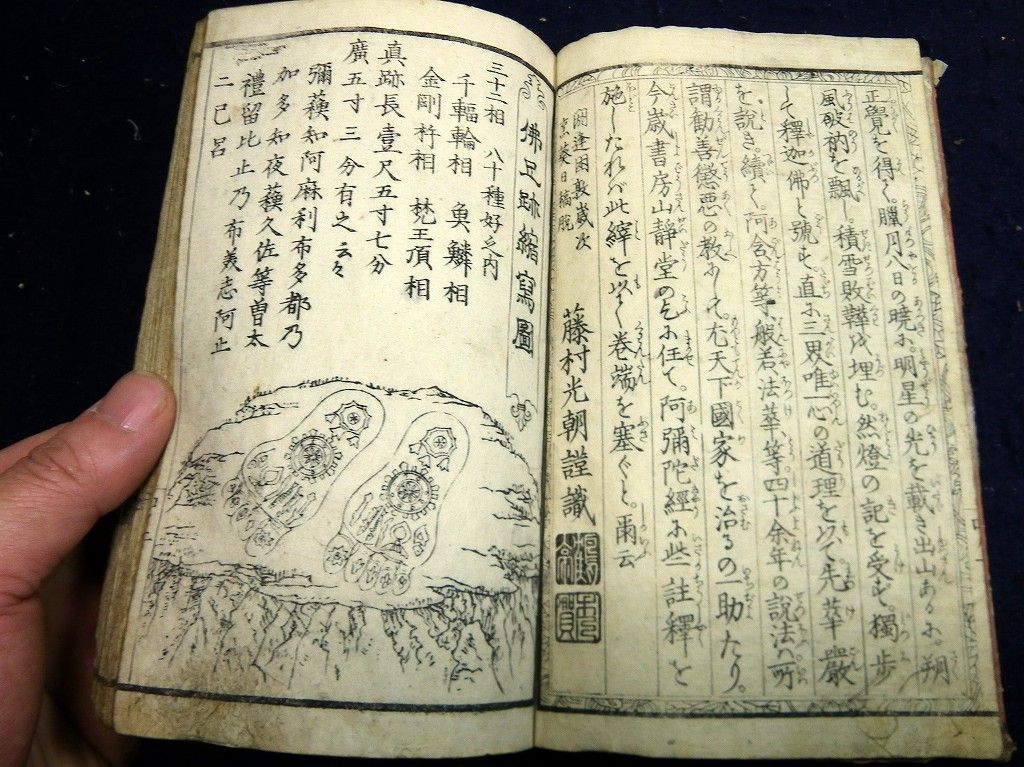 正覺を得て。臘月八日の暁に。明星の光を戴き出山あるに。朔
風破衲を飄し。積雪敗鞋を埋む。然燈の記を受て。獨歩
して釋迦佛と號す。直に三界唯一心の道理を以て先華嚴
を説き。續て阿含方等般若法華等。四十余年の説法ハ。所
謂勸善懲悪の教にして。尤天下國家を治るの一助たり。
今歳書房山静堂の乞に任て。阿彌陀經に些註釋を
施したれバ此縡を以て巻端を塞ぐと。爾云
閼逢困敦歳次
藤村光朝謹識
佛足跡縮寫圖
三十二相 八十種好之内
千輻輪相 魚鱗相
金剛杵相 梵王頂相
真跡長壹尺五寸七分
廣五寸三分有之云々
彌蘓知阿麻利布多都乃
加多知夜蘓久佐等曽太
禮留比止乃布美志阿止
二已呂